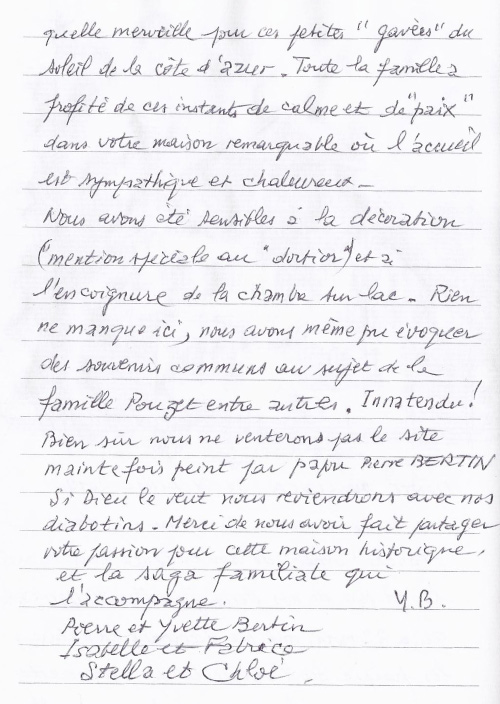 quelle merveille pour ces petites "gavées" du
soleil de la côte d'azur. Toute la famille a
profité de ces instants de calme et de "paix"
dans votre maison remarquable où l'accueil
est sympathique et chaleureux -
Nous avons été sensibles à la décoration
("mention spéciale au "dortior") et à
l'encoignure de la chambre sur lac. Rien
ne manque ici, nous avons même pu évoquer
des souvenirs communs au sujet de la
famille Pouzet entre autres. Innatendu!
Bien sûr nous ne venterons pas le site
maintefois peint par papu Pierre BERTIN
Si Dieu le veut nous reviendrons avec nos
diabotins. Merci de nous avoir fait partager
votre passion pour cette maison historique,
et la saga familiale qui
l'accompagne. Y.B.
Pierre et Yvette Bertin
Isabelle et Fabrice
Stella et Chloé.